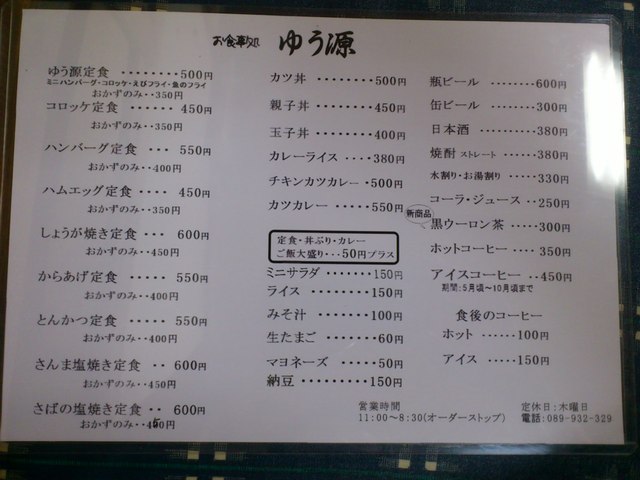 お食事処 ゆう源
ゆう源定食 ········500円
ミニハンバーグ・コロッケ・えびフライ・魚のフライ
おかずのみ‥350円
コロッケ定食 ···· 450円
おかずのみ‥350円
ハンバーグ定食 ··· 550円
おかずのみ‥400円
ハムエッグ定食 ···· 450円
おかずのみ‥350円
しょうが焼き定食 ··· 600円
おかずのみ‥450円
からあげ定食 ····· 550円
おかずのみ‥400円
とんかつ定食 ····· 550円
おかずのみ‥400円
さんま塩焼き定食 ·· 600円
おかずのみ‥450円
さばの塩焼き定食 ·· 600円
おかずのみ‥450円
カツ丼 ········500円
親子丼 ········450円
玉子丼 ········400円
カレーライス ····380円
チキンカツカレー ·500円
カツカレー ·····550円
定食・丼ぶり・カレー
ご飯大盛り···50円プラス
ミニサラダ ······150円
ライス ·········150円
みそ汁 ········100円
生たまご ·······60円
マヨネーズ ·····50円
納豆 ·········150円
瓶ビール ······600円
缶ビール ······300円
日本酒 ·······380円
焼酎 ストレート ·····380円
水割り・お湯割り ····330円
コーラ・ジュース ··250円
新商品
黒ウーロン茶 ····300円
ホットコーヒー ··· 350円
アイスコーヒー ··450円
期間:5月頃~10月頃まで
食後のコーヒー
ホット ·····100円
アイス ·····150円
営業時間
11:00~8:30(オーダーストップ)
定休日:木曜日
電話:089-932-329